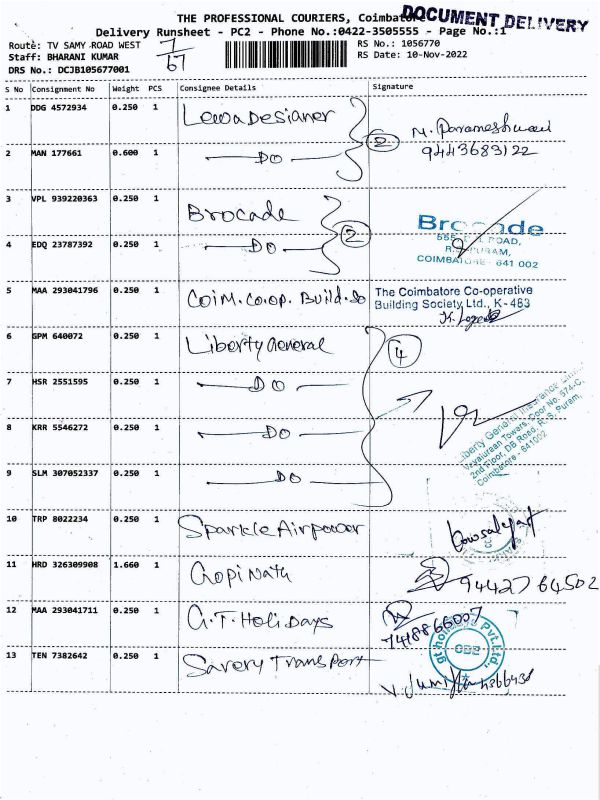 THE PROFESSIONAL COURIERS, Coimbatore
DOCUMENT DELIVERY
Delivery Runsheet - PC2 - Phone No.:0422-3505555 - Page No.:1
Route: TV SAMY ROAD WEST
7/67
RS No.: 1056770
Staff: BHARANI KUMAR
RS Date: 10-Nov-2022
DRS No.: DCJB105677001
S No Consignment No Weight PCS Consignee Details Signature
1 DDG 4572934 0.250 1 Lewa Desianer
2 M. Parameshwari
9443683122
2 MAN 177661 0.600 1 DO
3 VPL 939220363 0.250 1 Brocade
2 Brocade
ROAD,
R.S. PURAM,
COIMBATORE - 641 002
4 EDQ 23787392 0.250 1 DO
5 MAA 293041796 0.250 1 Coim. Co.op. Build. So
The Coimbatore Co-operative
Building Society Ltd., K-463
6 GPM 640072 0.250 1 Liberty General
4
7 HSR 2551595 0.250 1 DO
8 KRR 5546272 0.250 1 DO
Liberty General Insurance
Towers, Door No. 574-C,
2nd Floor, DB Road, R.S. Puram,
Coimbatore - 641002
9 SLM 307052337 0.250 1 DO
10 TRP 8022234 0.250 1 Sparkle Airpower
11 HRD 326309908 1.660 1 Gopi Nath
9442764502
12 MAA 293041711 0.250 1 G.T. Holidays
7418866007
gt holidays Pvt.Ltd.,
CBE
13 TEN 7382642 0.250 1 Savery Transport